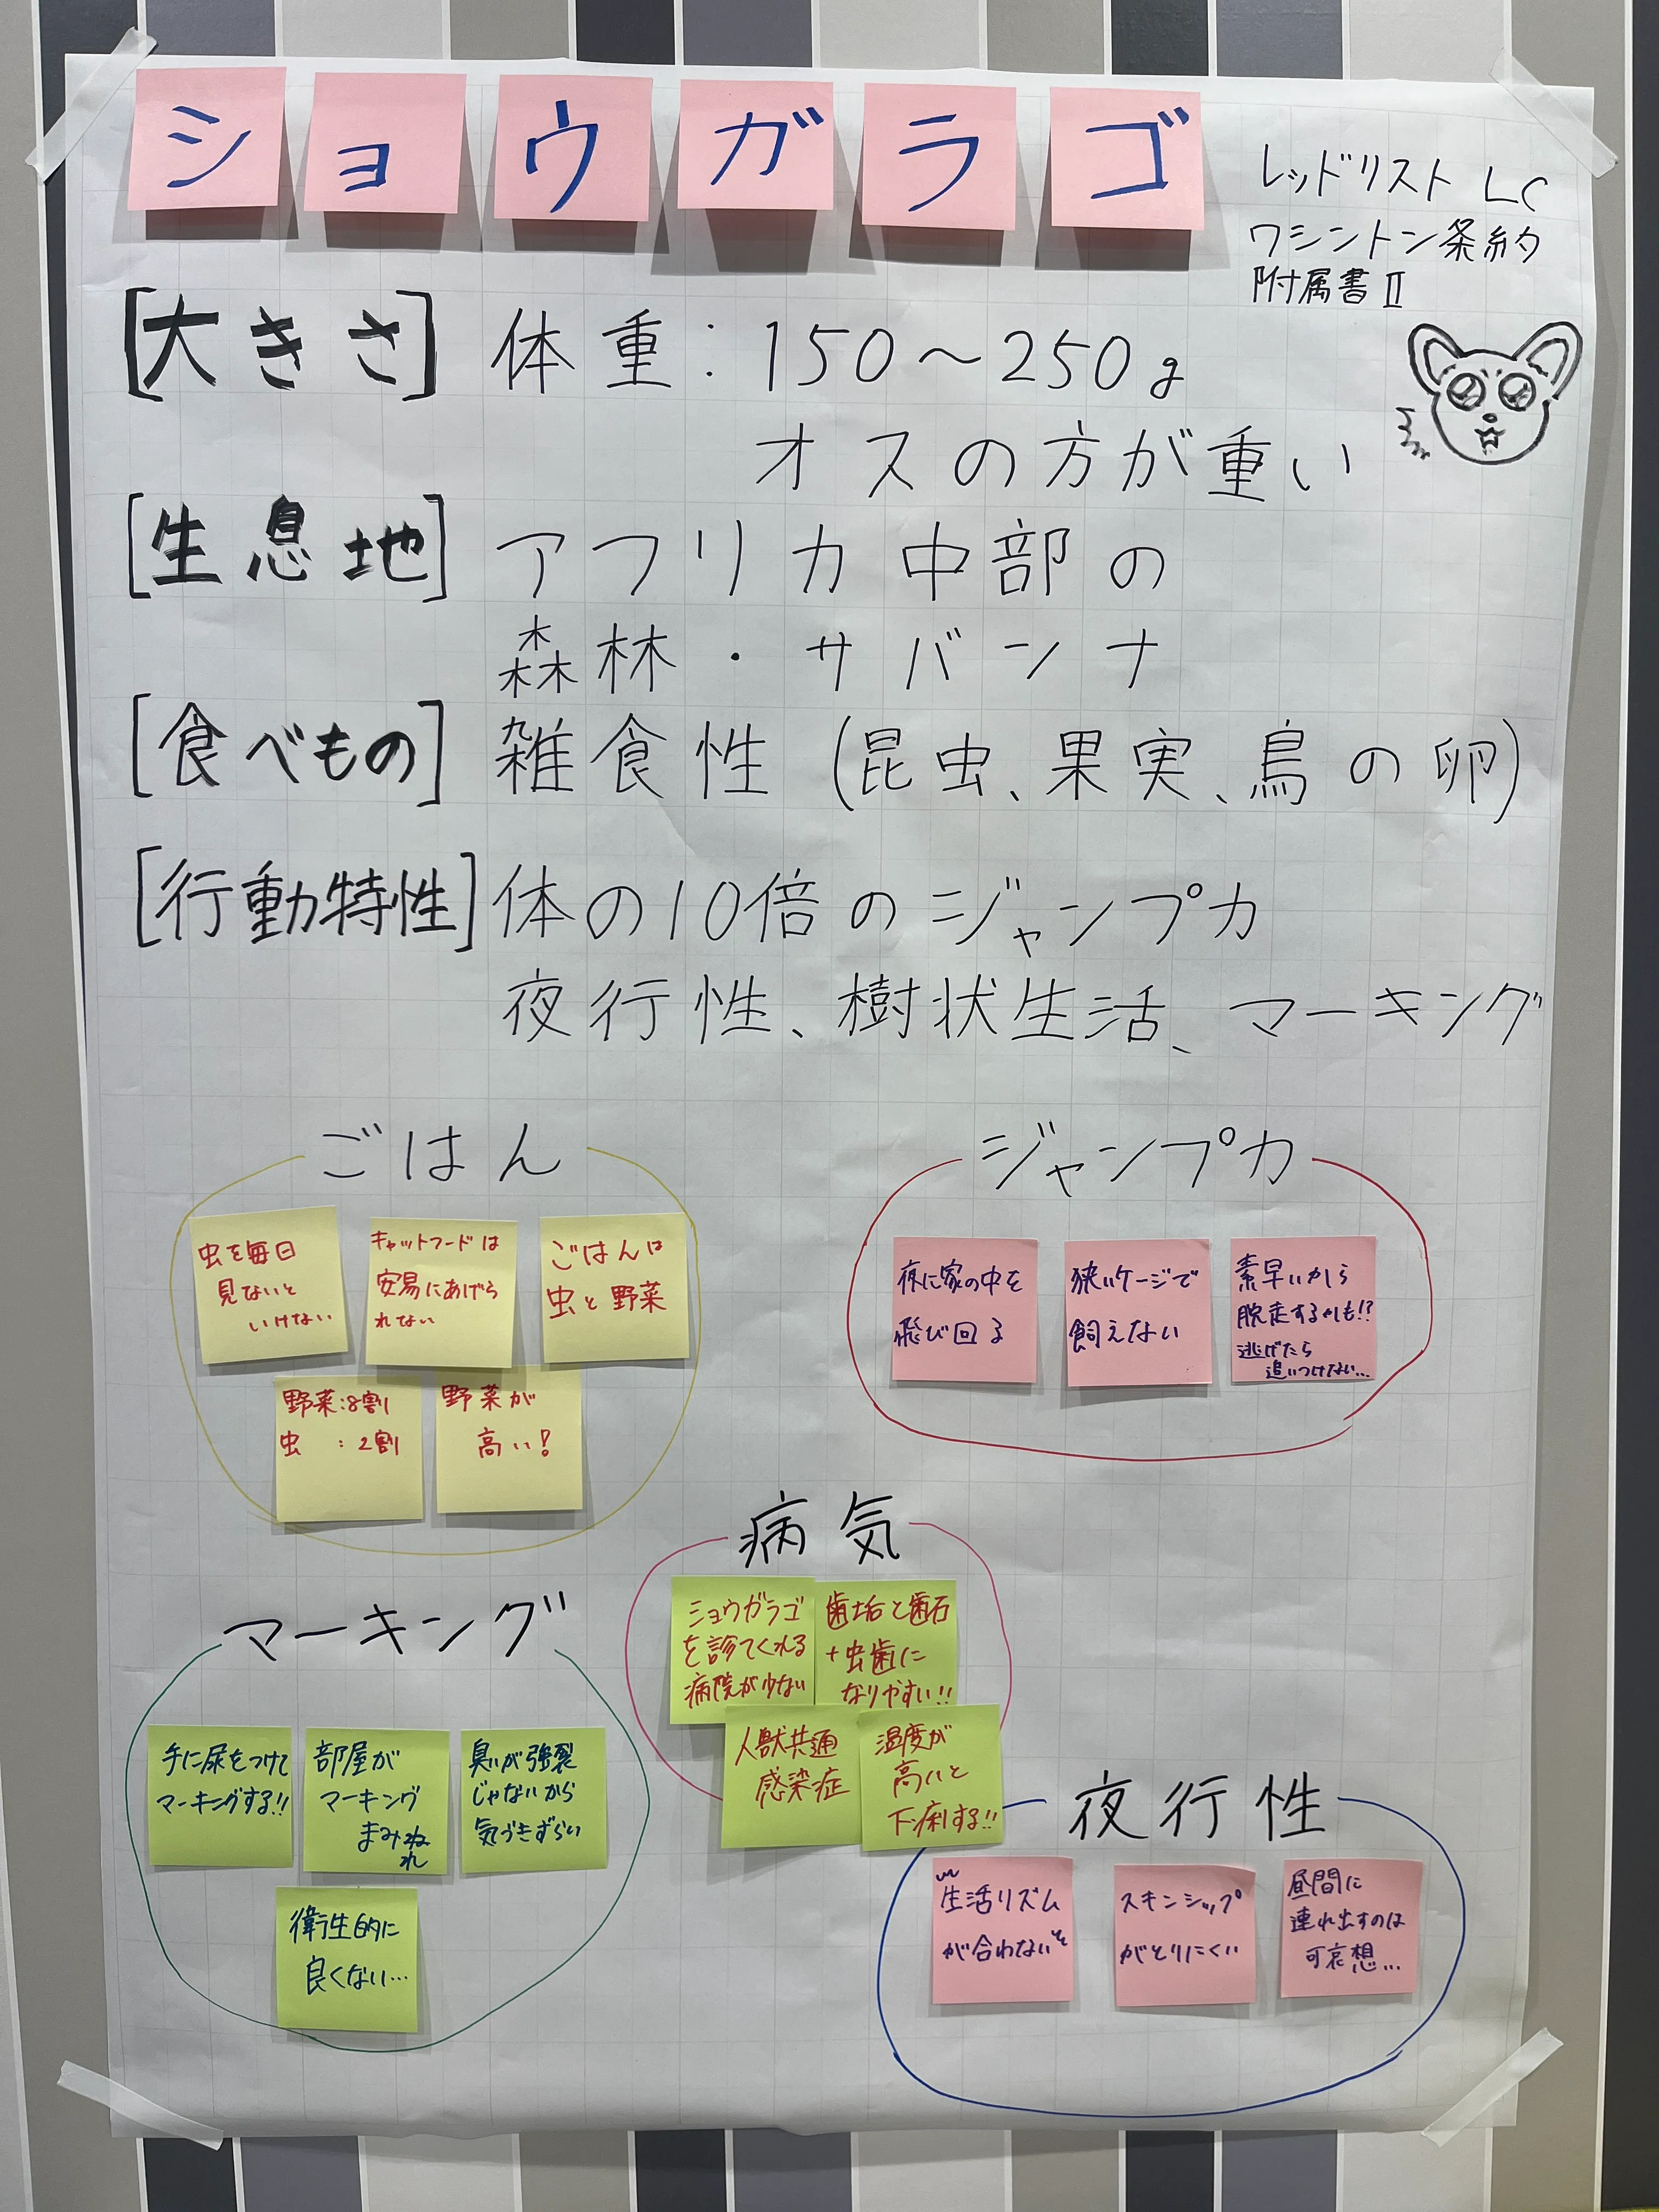 ショウガラゴ
レッドリスト LC
ワシントン条約
附属書 Ⅱ
[大きさ] 体重：150～250g
オスの方が重い
[生息地] アフリカ中部の
森林・サバンナ
[食べもの] 雑食性 (昆虫、果実、鳥の卵)
[行動特性] 体の10倍のジャンプ力
夜行性、樹状生活、マーキング
ごはん
虫を毎日
見ないと
いけない
キャットフードは
安易にあげら
れない
ごはんは
虫と野菜
野菜：8割
虫　：2割
野菜が
高い！
ジャンプ力
夜に家の中を
飛び回る
狭いケージで
飼えない
素早いから
脱走するかも!?
逃げたら
追いつけない…
病気
ショウガラゴ
を診てくれる
病院が少ない
歯垢と歯石
+虫歯に
なりやすい!!
人獣共通
感染症
温度が
高いと
下痢する!!
マーキング
手に尿をつけて
マーキングする!!
部屋が
マーキング
まみれ
臭いが強裂
じゃないから
気づきずらい
衛生的に
良くない…
夜行性
生活リズム
が合わない
スキンシップ
がとりにくい
昼間に
連れ出すのは
可哀想…